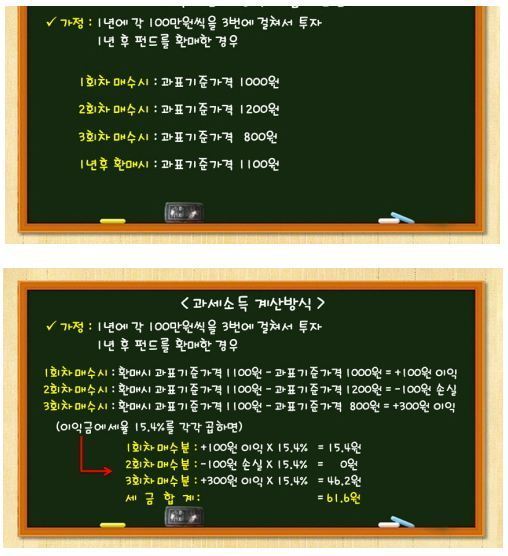 ✓ 가정 : 1년에 각 100만원씩을 3번에 걸쳐서 투자
1년 후 펀드를 환매한 경우
1회차 매수시 : 과표기준가격 1000원
2회차 매수시 : 과표기준가격 1200원
3회차 매수시 : 과표기준가격 800원
1년후 환매시 : 과표기준가격 1100원
< 과세소득 계산방식 >
✓ 가정 : 1년에 각 100만원씩을 3번에 걸쳐서 투자
1년 후 펀드를 환매한 경우
1회차매수시 : 환매시 과표기준가격 1100원 - 과표기준가격 1000원 = +100원 이익
2회차매수시 : 환매시 과표기준가격 1100원 - 과표기준가격 1200원 = -100원 손실
3회차매수시 : 환매시 과표기준가격 1100원 - 과표기준가격 800원 = +300원 이익
(이익금에세율 15.4%를 각각 곱하면)
1회차매수분 : +100원 이익 X 15.4% = 15.4원
2회차매수분 : -100원 손실 X 15.4% = 0원
3회차매수분 : +300원 이익 X 15.4% = 46.2원
세 금 합 계 : = 61.6원